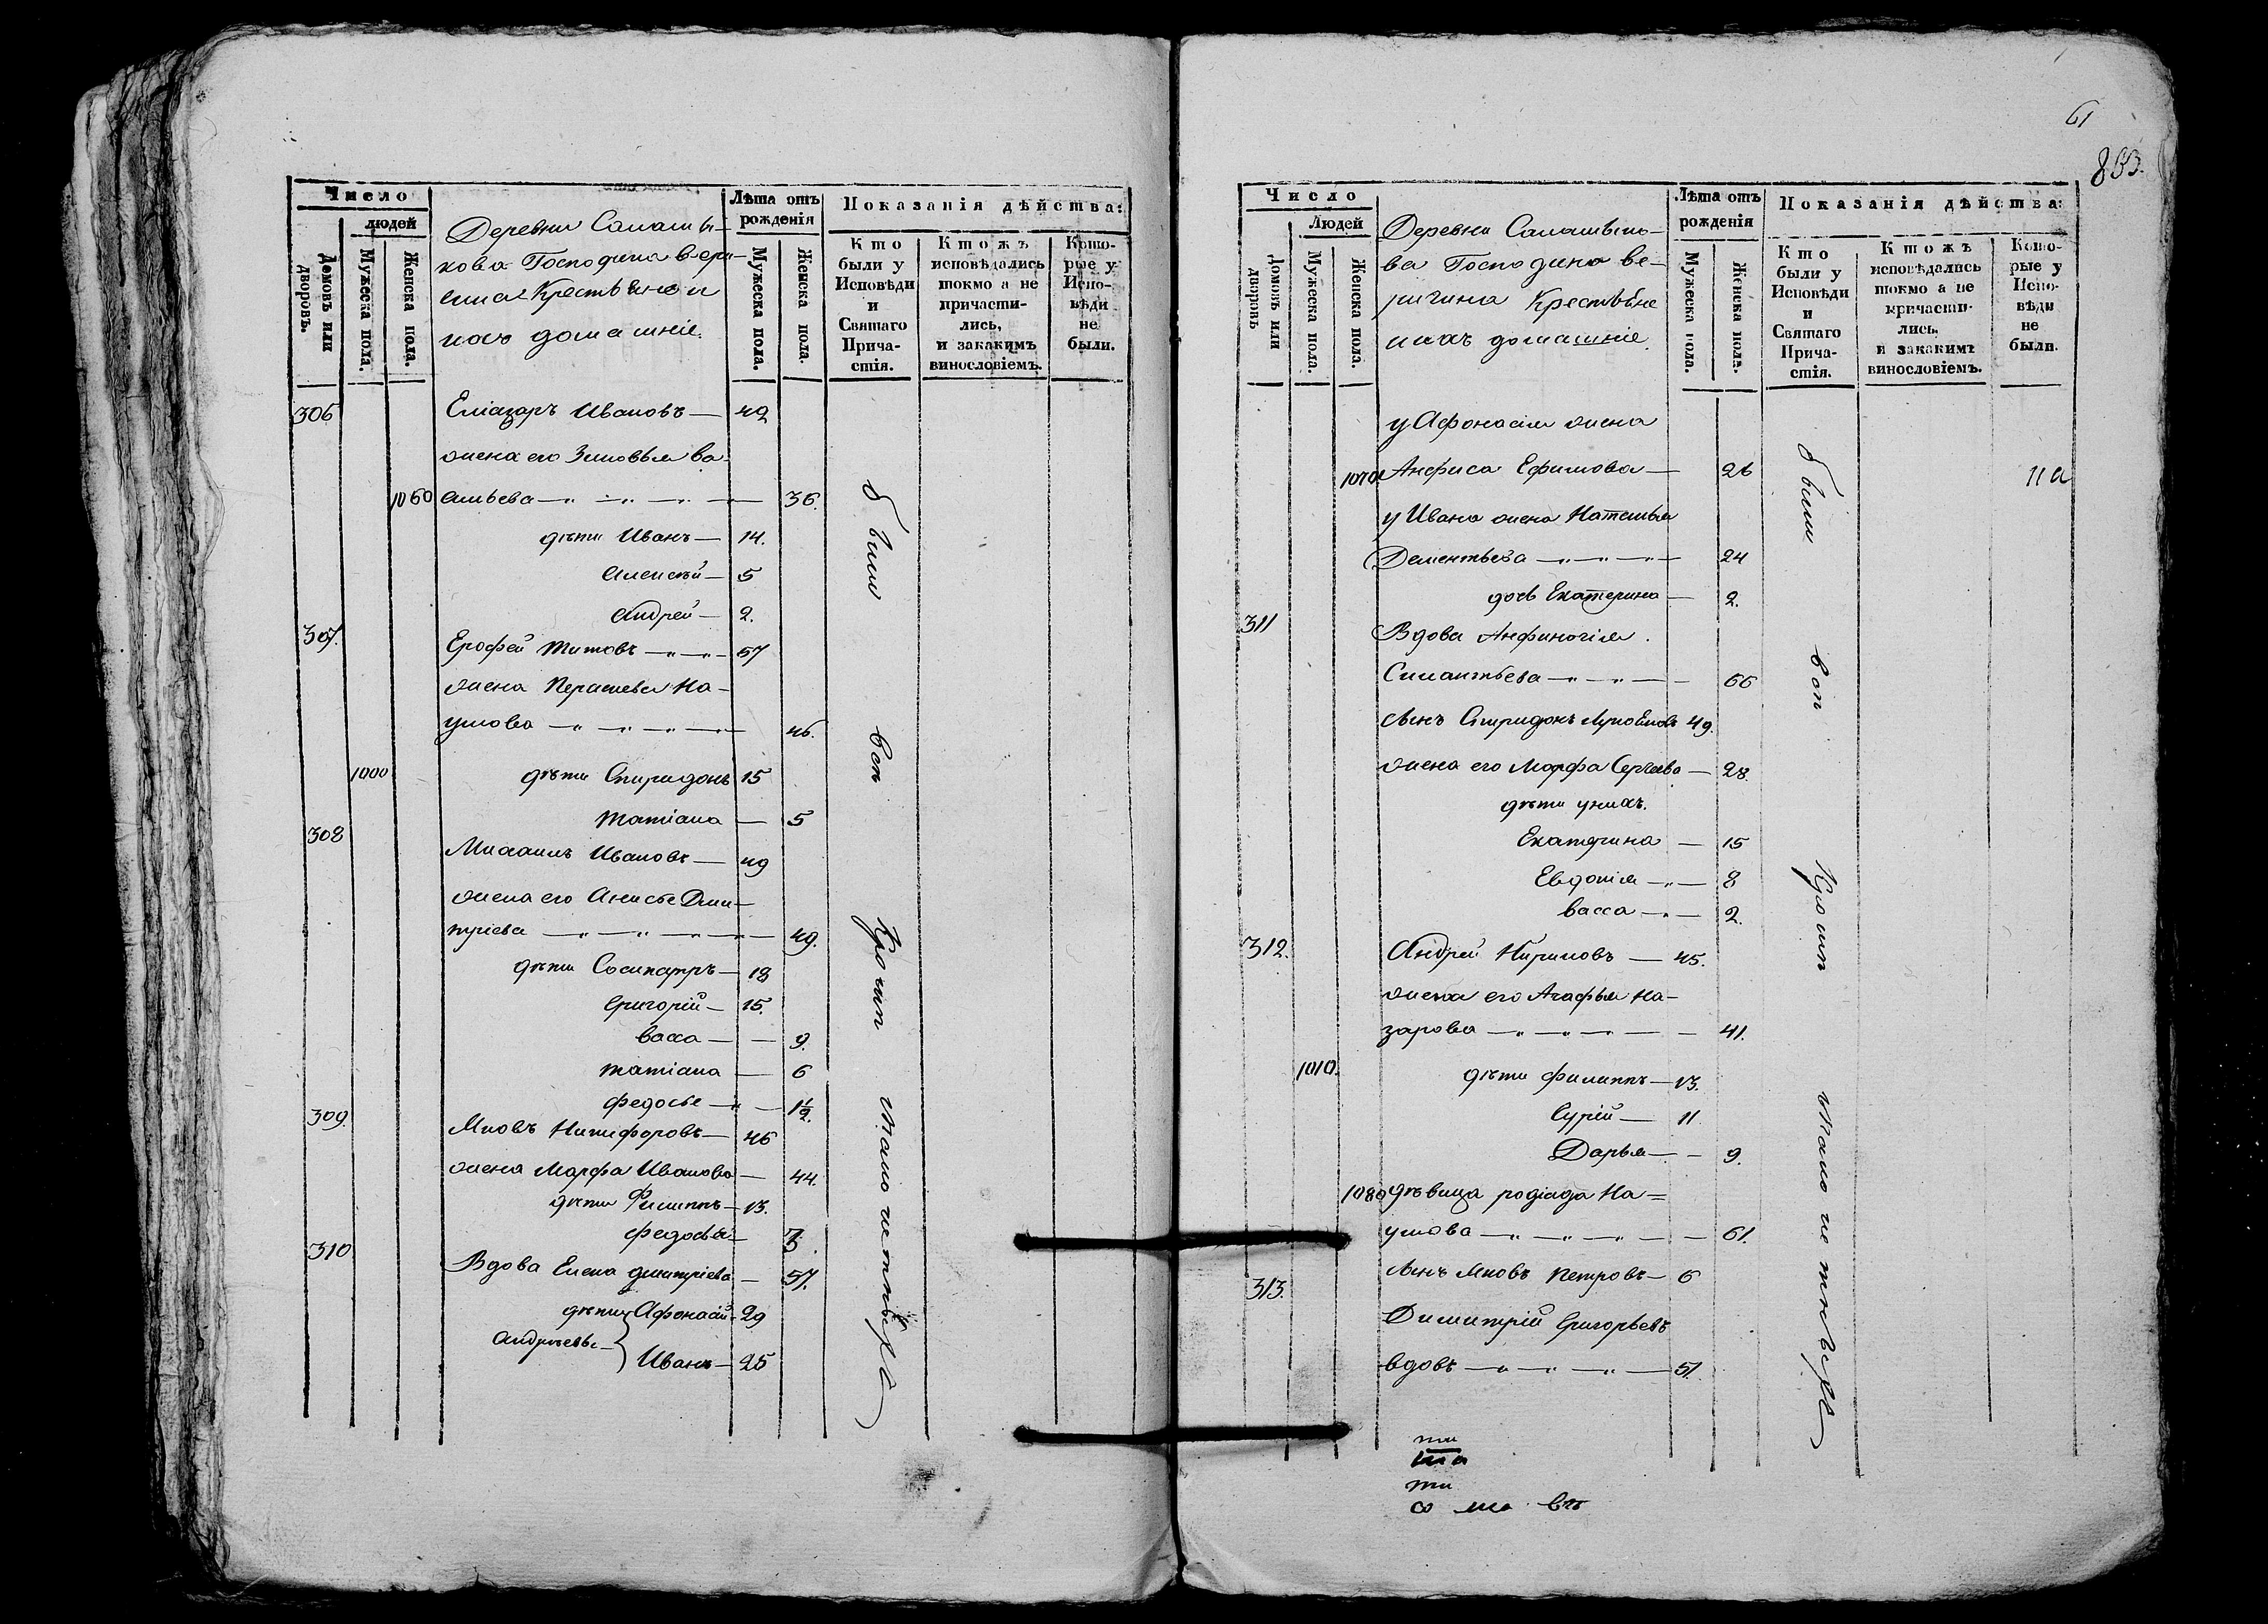 Число
людей
Домовъ или дворовъ.
Мужеска пола.
Женска пола.
Деревни
кова Господина вери-
гина Крестьяне и
ихъ домашніе.
Лѣта отъ
рожденія
Мужеска пола.
Женска пола.
Показанія дѣйства:
Кто
были у
Исповѣди
и
Святаго
Прича-
стія.
Ктожъ
исповѣдались
токмо а не
причасти-
лись,
и закакимъ
винословіемъ.
Кото-
рые у
Испо-
вѣди
не
были.
306 Еліазаръ Ивановъ — 42
жена его Зиновья Ва-
1060 сильева — 36.
дѣти Иванъ — 14.
Алексѣй — 5
Андрей — 2.
307. Ерофей Титовъ — 57
жена На-
умова — 46.
1000 дѣти Спиридонъ 15
Татіана — 5
308 Михаилъ Ивановъ — 49
жена его Анисья Дми-
тріева — 49.
дѣти Сосипатръ — 18
Григорій — 15.
Васса — 9.
Татіана — 6
Федосье — 1½
309. Яковъ Никифоровъ — 46
жена Марфа Иванова — 44.
дѣти Филиппъ — 13.
Федосья —
310 Вдова Елена Дмитріева — 57.
дѣти Афонасій 29
Андреевы
Иванъ — 25
были
вси
61
Число
Людей
Домовъ или дворовъ
Мужеска пола.
Женска пола.
Деревни
ва Господина ве-
ригина Крестьяне
и ихъ домашніе.
Лѣта отъ
рожденія
Мужеска пола.
Женска пола.
Показанія дѣйства:
Кто
были у
Исповѣди
и
Святаго
Прича-
стія.
Ктожъ
исповѣдались
токмо а не
причасти-
лись.
и закакимъ
винословіемъ.
Кото-
рые у
Испо-
вѣди
не
были.
у Афонасія жена
1070 Анфиса Ефимова — 26
у Ивана жена Наталья
Дементьева — 24
дочь Екатерина — 2.
311 Вдова Анфиногія
66
сынъ Спиридонъ 49.
жена его Марфа Сергеева — 28
дѣти у нихъ.
Екатерина — 15
Евдокія — 8
Васса — 2.
312. Андрей Кириловъ — 45.
жена его Агафья На-
зарова — 41.
1010. дѣти Филиппъ — 13.
Гурій — 11
Дарья — 9.
1080 дѣвица На-
умова — 61.
сынъ Яковъ Петровъ — 6
313. Димитрій Григорьевъ
вдовъ — 51.
были
вси